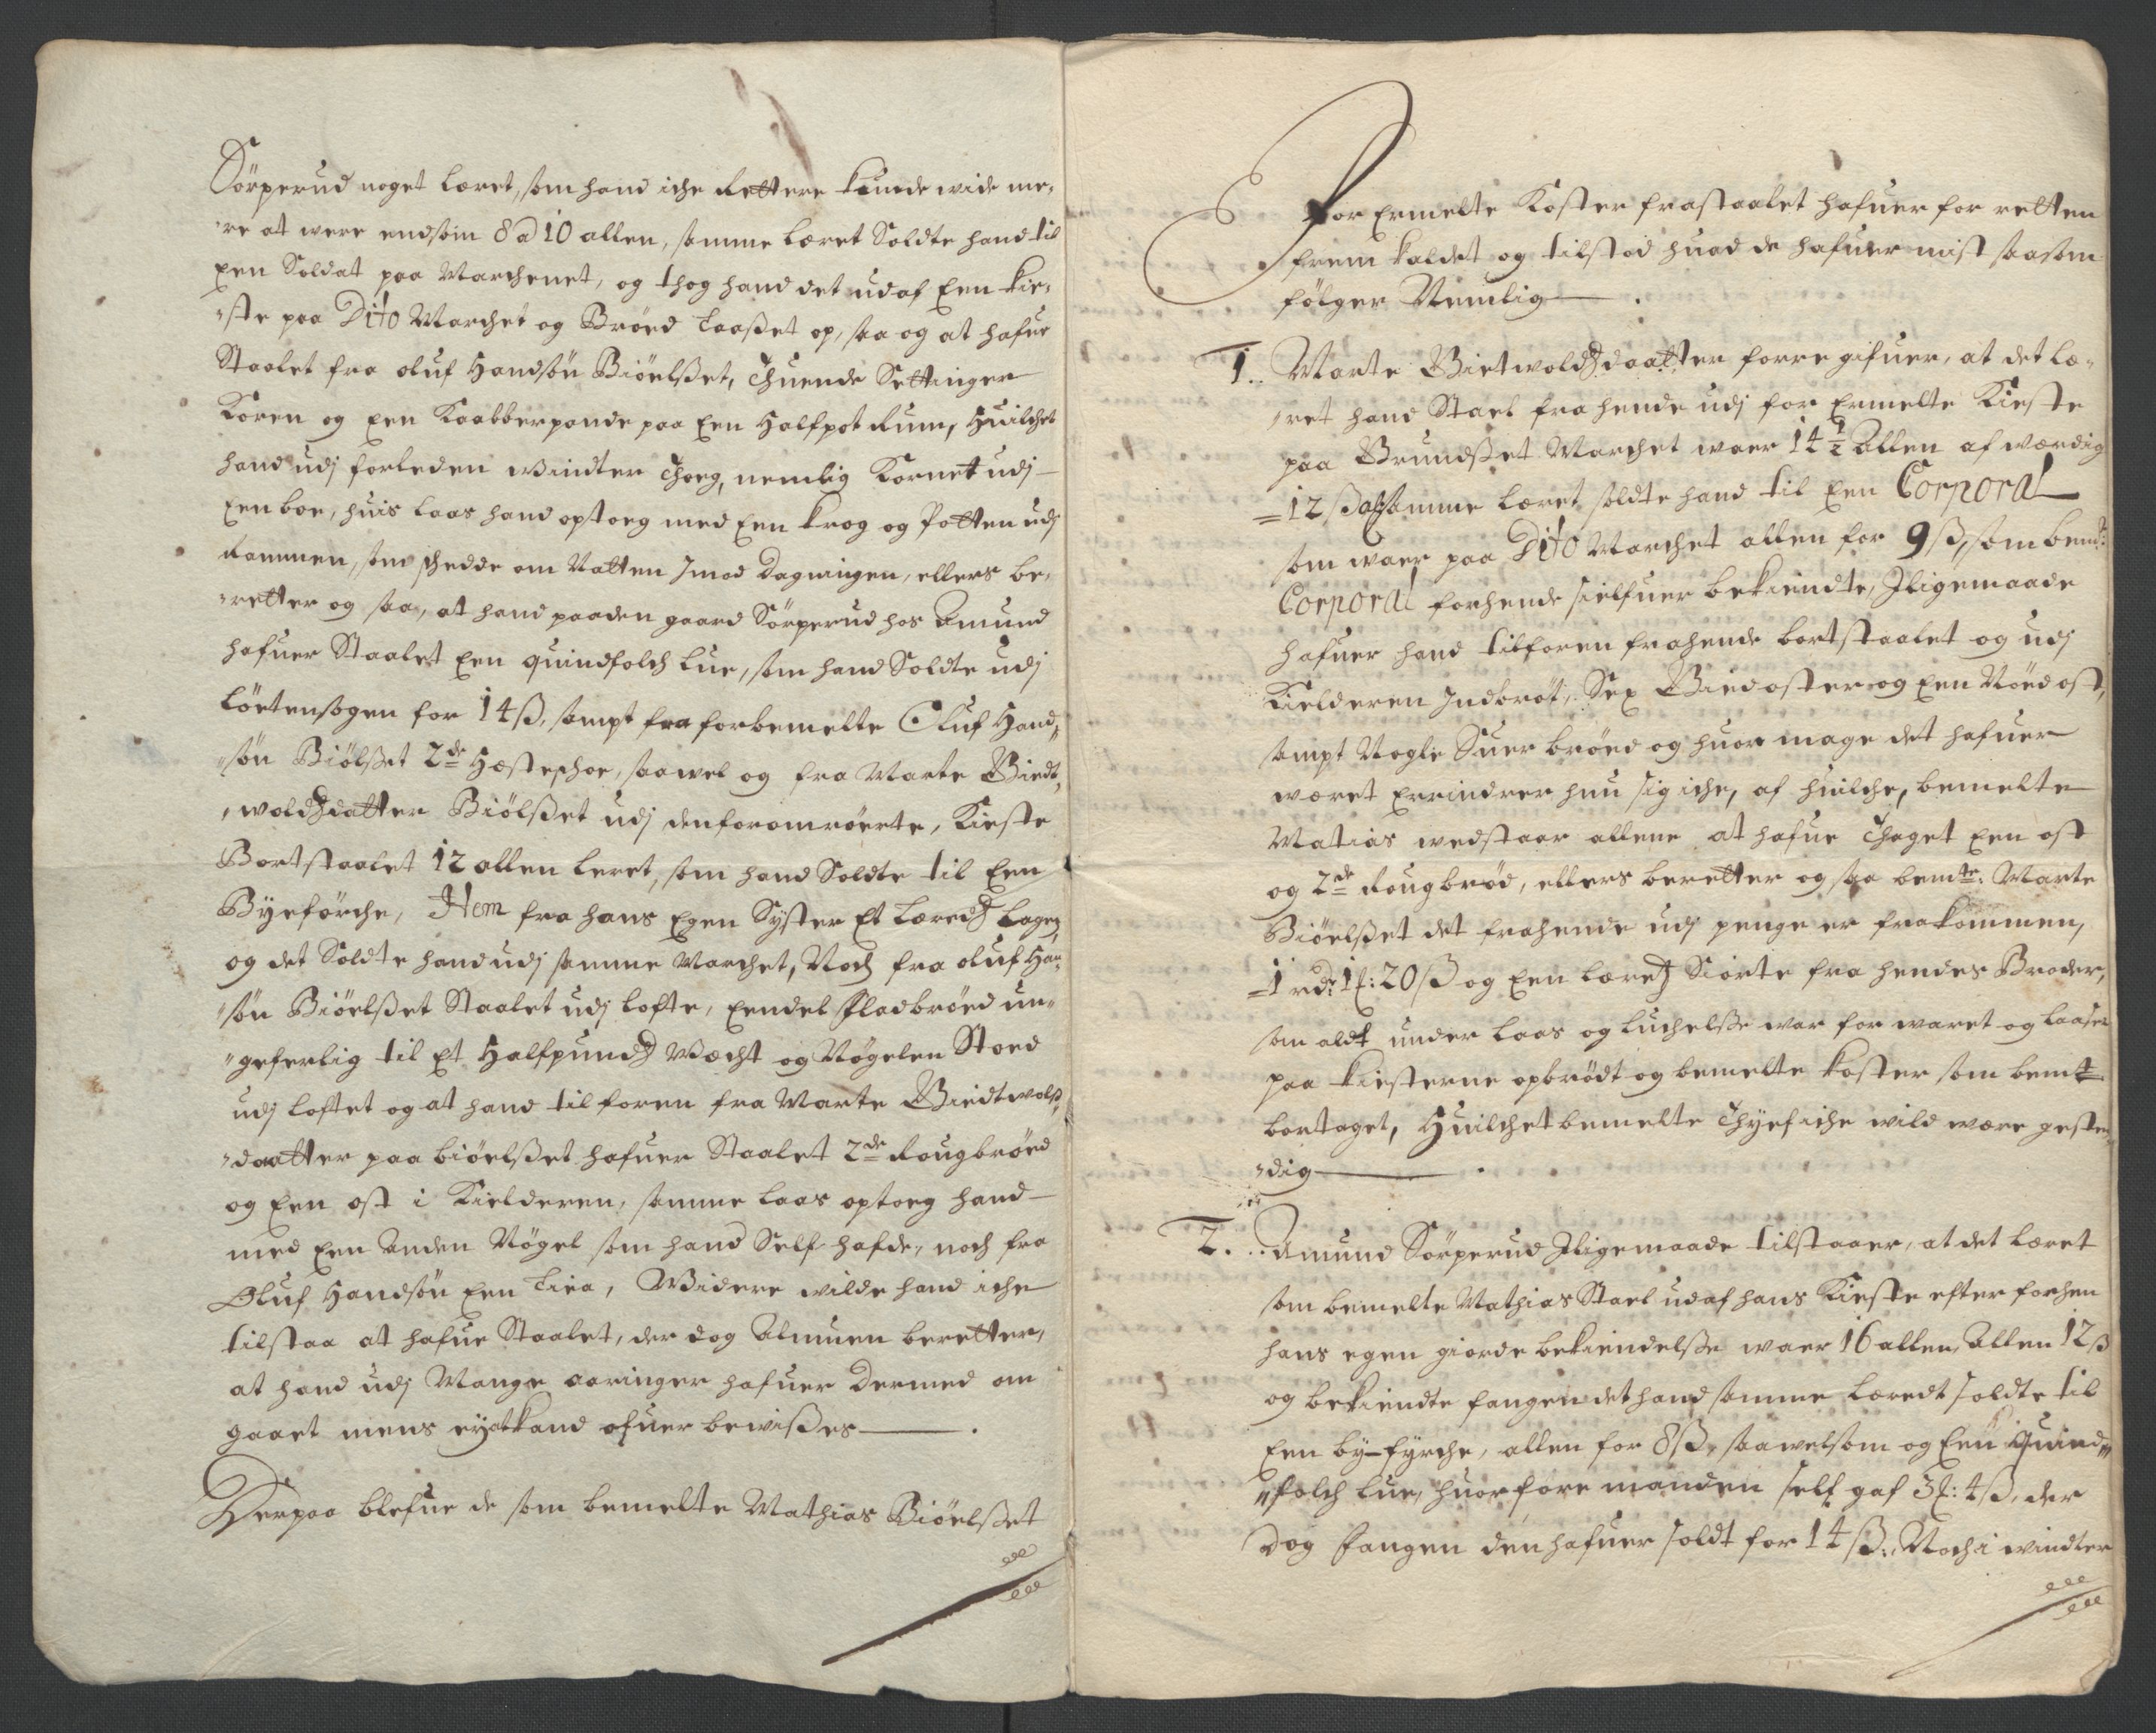 Sörperud noget læret, som hand iche Rettere kunde wide me,
,re at were endsom 8 a 10 allen, samme læret Soldte hand til
Een Soldat paa Marchenet, og thog hand det udaf Een kie,
,,ste paa Dito Marchet og Bröed Laaßet op, saa og at hafue
Staalet fra oluf Handsön Biöelßet, Thuende Settinger
Koren og Een Kaabberpande paa Een Halfpot Rum, Huilchet
hand udj forleden Windter Thoeg, nemlig Kornet udj
Een boe, huis laas hand optoeg med Een krog og Potten udj
Rammen, som schedde om Natten Imod dagningen, ellers be,
,,retter og saa, at hand paa den gaard Sörperud hos Amund
hafuer Staalet Een quindfolch lue, som hand Soldte udj
Löetensogen for 14 ß, sampt fra forbemelte Oluf Hand,,
,,sön Biölßet 2de Hæsteschoe, saawel og fra Marte Biedt,
,woldsdatter Biölßet udj den foromrörte, Kieste
Bortstaalet 12 allen leret, som hand Soldte til Een
Byeförche, Item fra hans Egen Syster Et læreds lagen,
og det Soldte hand udj samme Marchet, Noch fra oluf Han,,
,,sön Biöelßet Staalet udj lofte, Eendel fladbröed un,,
,,geferlig til Et Halfpunds Wæcht og Nögelen Stoed
udj loftet og at hand tilforen fra Marte Biedtwolß,
,,daatter paa biöelßet hafuer Staalet 2de Rougbröed
og Een ost i Kielderen, samme laas optoeg hand
med Een Anden Nögel som hand Self hafde, noch fra
Oluf Handsön Een Liea, Widere wilde hand iche
tilstaa at hafue Staalet, der dog Almuen beretter,
at hand udj Mange aaringer hafuer Dermed om
gaaet mens ey kand ofuer bewißes
Herpaa blefue de som bemelte Mathias Biöelßet
For Ermelte Koster frastaalet hafuer for retten
frem kaldet og tilstod huad de hafuer mist saasom
fölger Nemlig
1.. Marte Bietwoldsdaatter forregifuer, at det læ,
,,ret hand Stael fra hende udj for Ermelte Kieste
paa Grundßet Marchet waer 14 1/2 Allen af wærdig
12 ß samme læret soldte hand til Een Corporal
som waer paa Dito Marchet allen for 9 ß, som bemte:
Corporal for hende sielfuer bekiendte, Iligemaade
hafuer hand tilforen fra hende bortstaalet og udj
Kielderen Indbröt, Sex Giedoster og Een Nöedost,
sampt Nogle Suer bröed og huor mage det hafuer
wæret Errindrer hun sig iche, af huilche, bemelte
Matias wedstaar allene at hafue Thaget Een ost
og 2de Rougbröd, ellers beretter og saa bemte: Marte
Biöelßet det fra hende udj penge er frakommen,
1 rdr 1 ₰: 20 ß og Een læreds Siorte fra hendes Broder,
som aldt under laas og luchelße war for waret og laasen
paa kiesterne opbrödt og bemelte koster som bemt
bortaget, Huilchet bemelte Thyef iche wild være gesten,
,,dig
2... Amund Sörperud Iligemaade tilstaaer, at det læret
som bemelte Mathias Stael udaf hans Kieste efter forhen
hans egen giorde bekiendelße waer 16 allen, Allen 12 ß
og bekiendte fangen det hand samme læredt soldte til
Een by-fyrche, allen for 8 ß, saawelsom og Een Quind,,
,,folch lue, huor fore manden self gaf 3 ₰: 4 ß, der
dog fangen den hafuer soldt for 14 ß:, Noch i windter